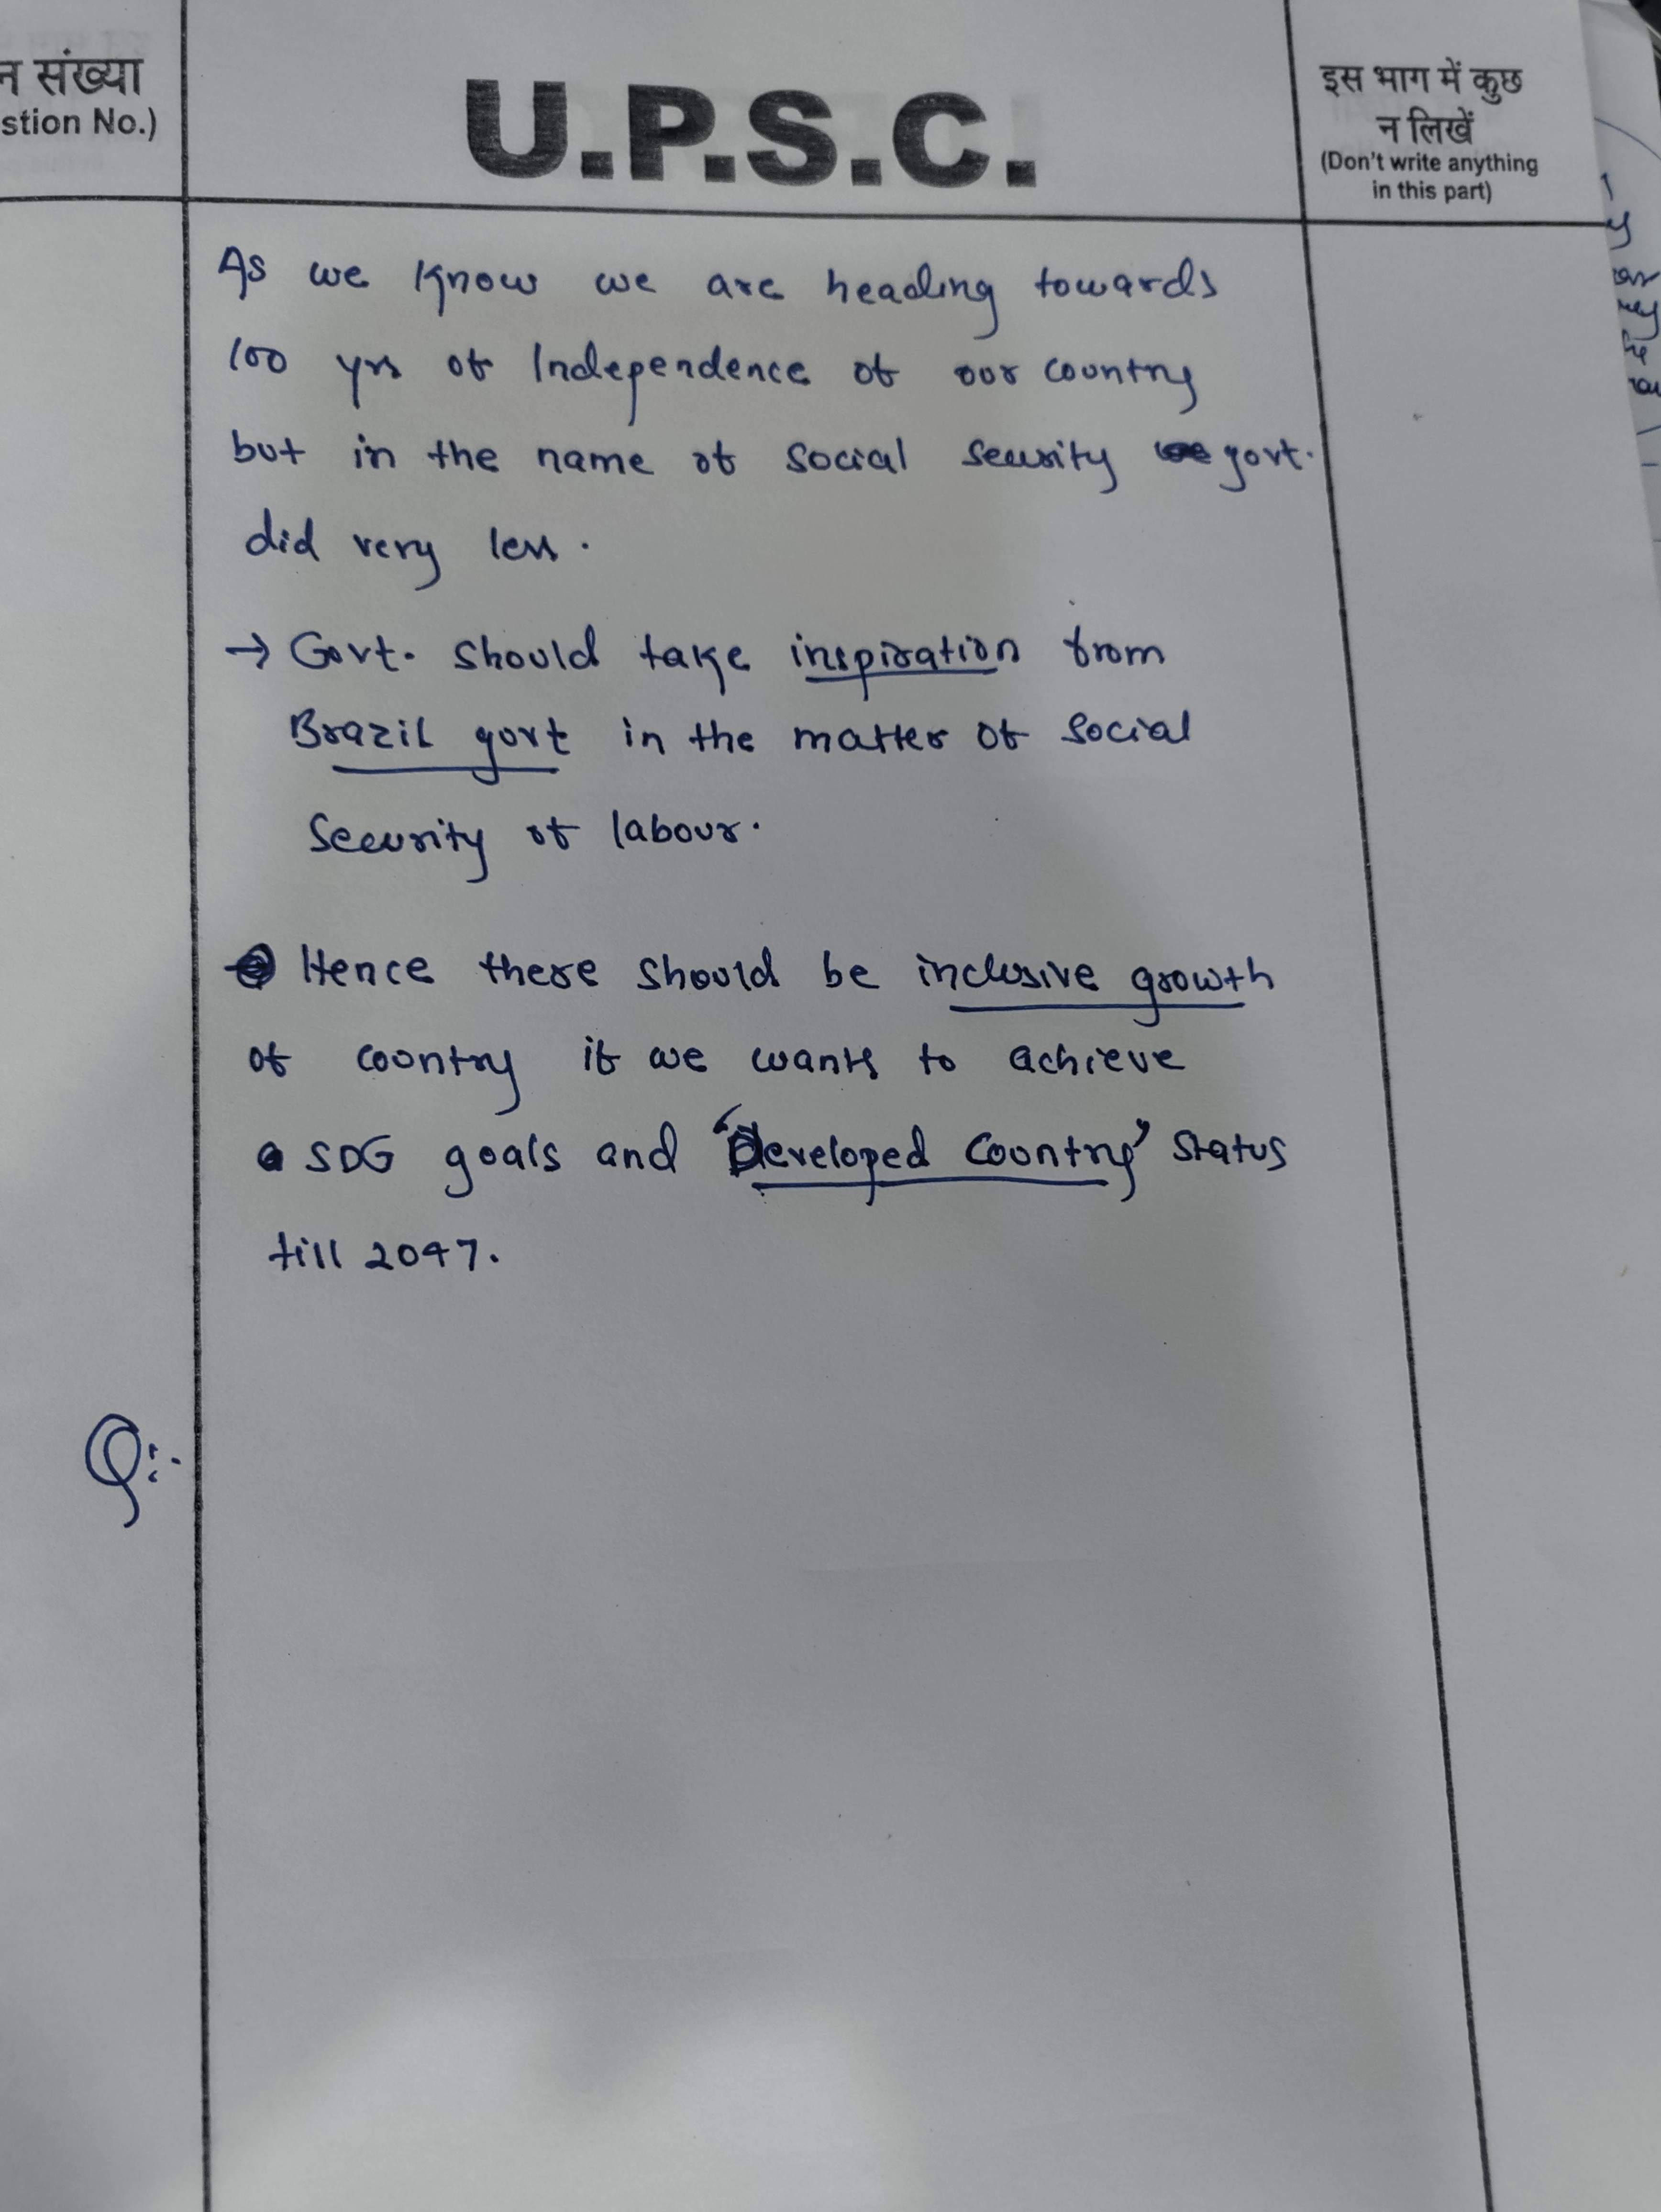 न संख्या
stion No.)
U.P.S.C.
इस भाग में कुछ
न लिखें
(Don't write anything
in this part)
As we know we are heading towards
100 yrs of Independence of our country
but in the name of social security govt.
did very less.
→ Govt. should take inspiration from
Brazil govt in the matter of social
security of labour.
Hence there should be inclusive growth
of country if we wants to achieve
SDG goals and 'Developed Country' status
till 2047.
Q:-